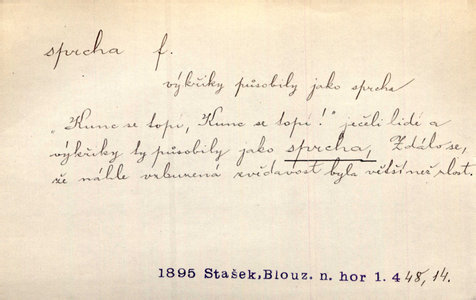 sprcha f.
výkřiky působily jako sprcha
„Kunc se topí, Kunc se topí!" ječeli lidé a
výkřiky ty působily jako sprcha, Zdálo se,
že náhle vzbuzená zvědavost byla větší než zlost.
1895 Stašek, Blouz. n. hor 1. 4 48, 14.